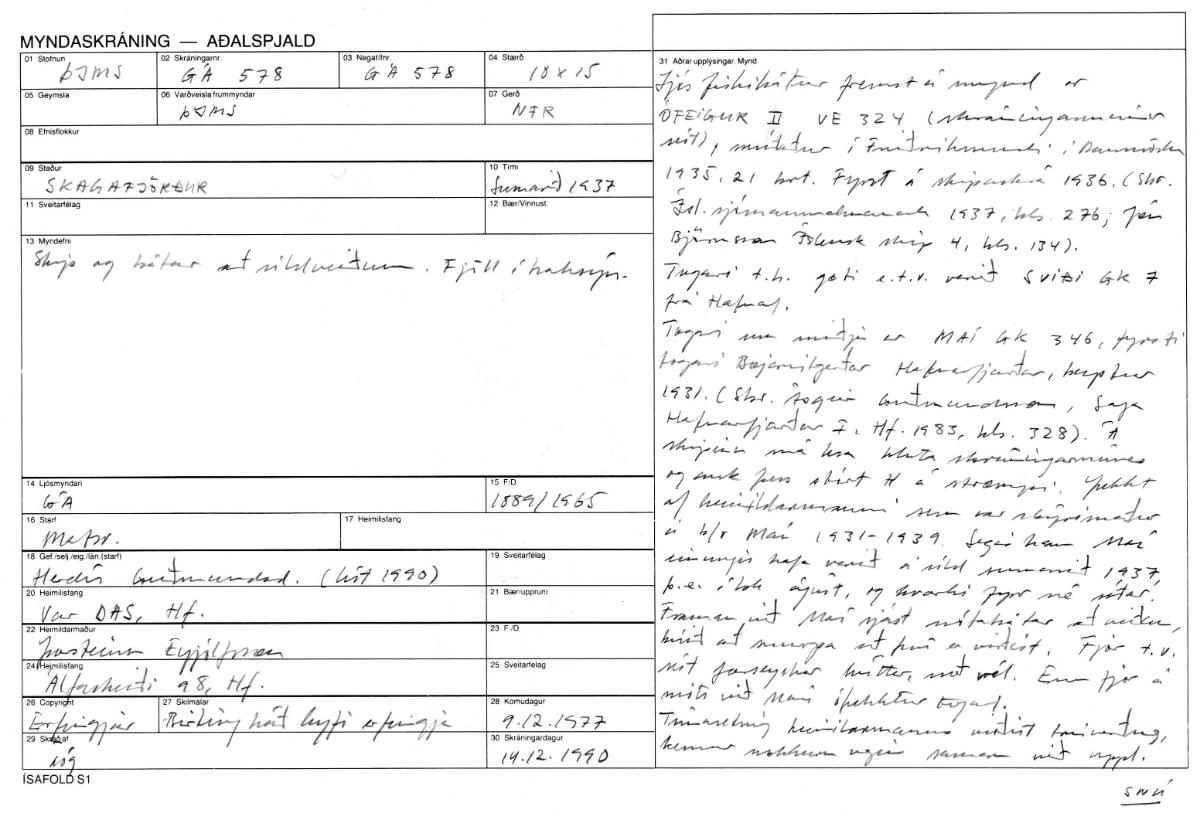 MYNDASKRÁNING — AÐALSPJALD
01 Stofnun
ÞJMS
02 Skráningarnr.
GÁ 578
03 Negatífnr.
GÁ 578
04 Stærð
10 x 15
05 Geymsla
06 Varðveisla frummyndar
ÞJMS
07 Gerð
NFR
08 Efnisflokkur
09 Staður
SKAGAFJÖRÐUR
10 Tími
Sumarið 1937
11 Sveitarfélag
12 Bær/Vinnust.
13 Myndefni
Skip og bátar að síldveiðum. Fjöll í baksýn.
14 Ljósmyndari
GÁ
15 F/D.
1889/1965
16 Starf
17 Heimilisfang
18 Gef./selj./eig./lán.(starf)
Herdís Guðmundsd. (lést 1990)
19 Sveitarfélag
20 Heimilisfang
Var DAS, Hf.
21 Bær/uppruni
22 Heimildarmaður
Þorsteinn Eyjólfsson
23 F./D.
24 Heimilisfang
Álfaskeiði 98, Hf.
25 Sveitarfélag
26 Copyright
Erfingjar
27 Skilmálar
Birting háð leyfi erfingja
28 Komudagur
9.12.1977
29 Skráð af
ísg
30 Skráningardagur
14.12.1990
31 Aðrar upplýsingar. Mynd
fiskibátur fremst á mynd er
ÓFEIGUR II VE 324 (skráningarnúmer
sést), í Friðrikssundi í Danmörku
1935, 21 brt. Fyrst á skipaskrá 1936. (Sbr.
Ísl. sjómannaalmanak 1937, bls. 276; Jón
Björnsson Íslensk skip 4, bls. 134).
Togari t.h. gæti e.t.v. verið SVIÐI GK 7
frá Hafnarf.
Togari um miðju er MAÍ GK 346, fyrsti
togari Bæjarútgerðar Hafnarfjarðar, keyptur
1931. (Sbr. Ásgeir Guðmundsson, Saga
Hafnarfjarðar I, Hf. 1983, bls. 328). Á
skipinu má lesa hluta skráningarnúmers
og auk þess stórt H á strompi. Þekkt
af heimildarmanni sem var skipstjóri
á b/v Maí 1931-1939. Segir hann Maí
einungis hafa verið á síld sumarið 1937,
þ.e. í ágúst, og hvorki fyrr né síðar.
Framan við Maí sjást nótabátar að veiðum,
að snurpa að því er virðist. Fjær t.v.
sést bátur, með vél. Enn fjær á
móts við Maí óþekktur togari.
heimildarmanns virðist
kemur nokkurn veginn saman við uppl.
SNÚ
ÍSAFOLD S1